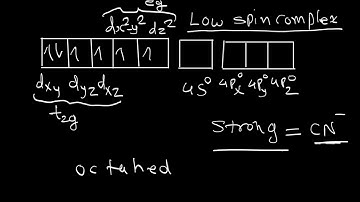 eg
dx²-y² dz² Low spin complex
1l 1 1 1 1
dxy dyz dxz 4s⁰ 4px⁰ 4py⁰ 4pz⁰
t₂g
Strong = CN⁻
octahed